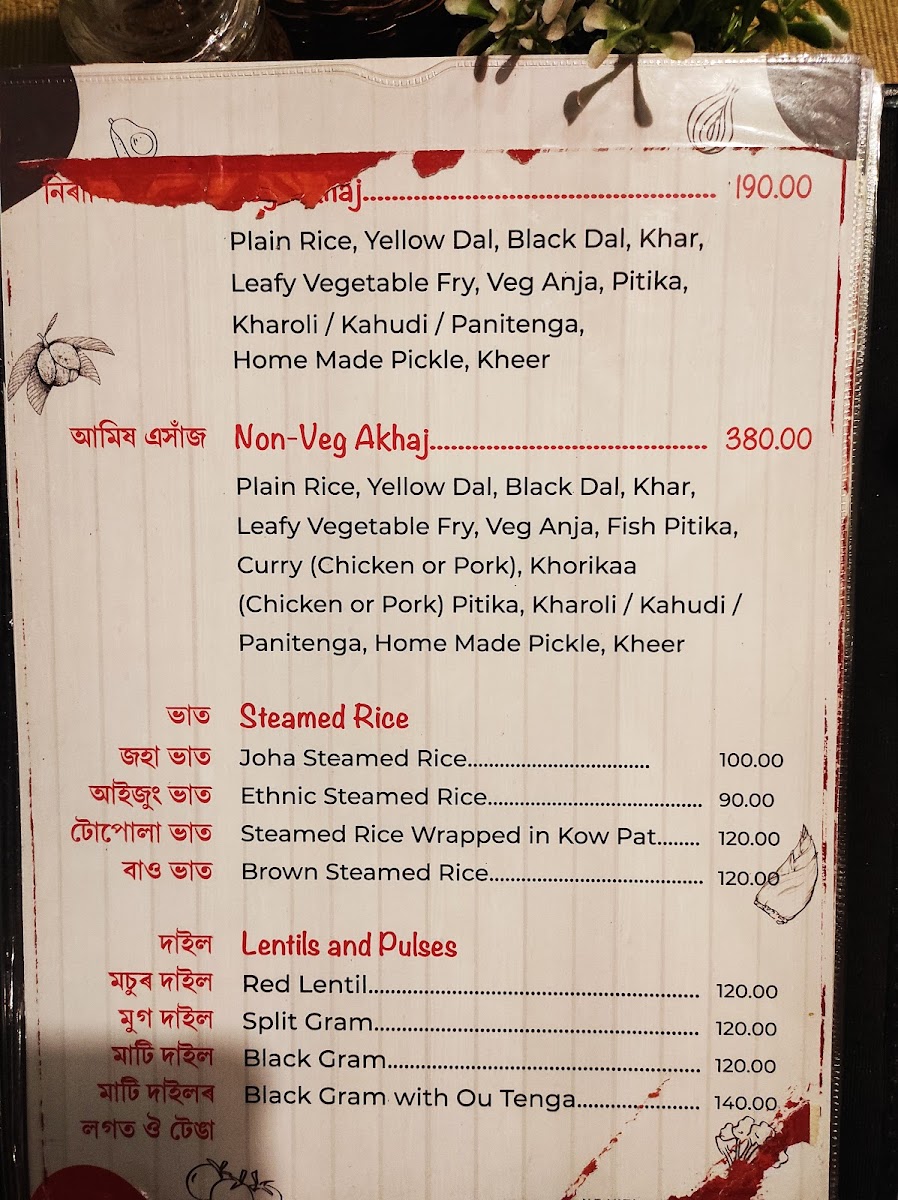 190.00
Plain Rice, Yellow Dal, Black Dal, Khar,
Leafy Vegetable Fry, Veg Anja, Pitika,
Kharoli / Kahudi / Panitenga,
Home Made Pickle, Kheer
আমিষ এসাঁজ Non-Veg Akhaj........................................ 380.00
Plain Rice, Yellow Dal, Black Dal, Khar,
Leafy Vegetable Fry, Veg Anja, Fish Pitika,
Curry (Chicken or Pork), Khorikaa
(Chicken or Pork) Pitika, Kharoli / Kahudi /
Panitenga, Home Made Pickle, Kheer
ভাত Steamed Rice
জহা ভাত Joha Steamed Rice................................ 100.00
আইজুং ভাত Ethnic Steamed Rice...................................... 90.00
টোপোলা ভাত Steamed Rice Wrapped in Kow Pat........ 120.00
বাও ভাত Brown Steamed Rice...................................... 120.00
দাইল Lentils and Pulses
মচুৰ দাইল Red Lentil.......................................................... 120.00
মুগ দাইল Split Gram......................................................... 120.00
মাটি দাইল Black Gram....................................................... 120.00
মাটি দাইলৰ Black Gram with Ou Tenga...................... 140.00
লগত ঔ টেঙা